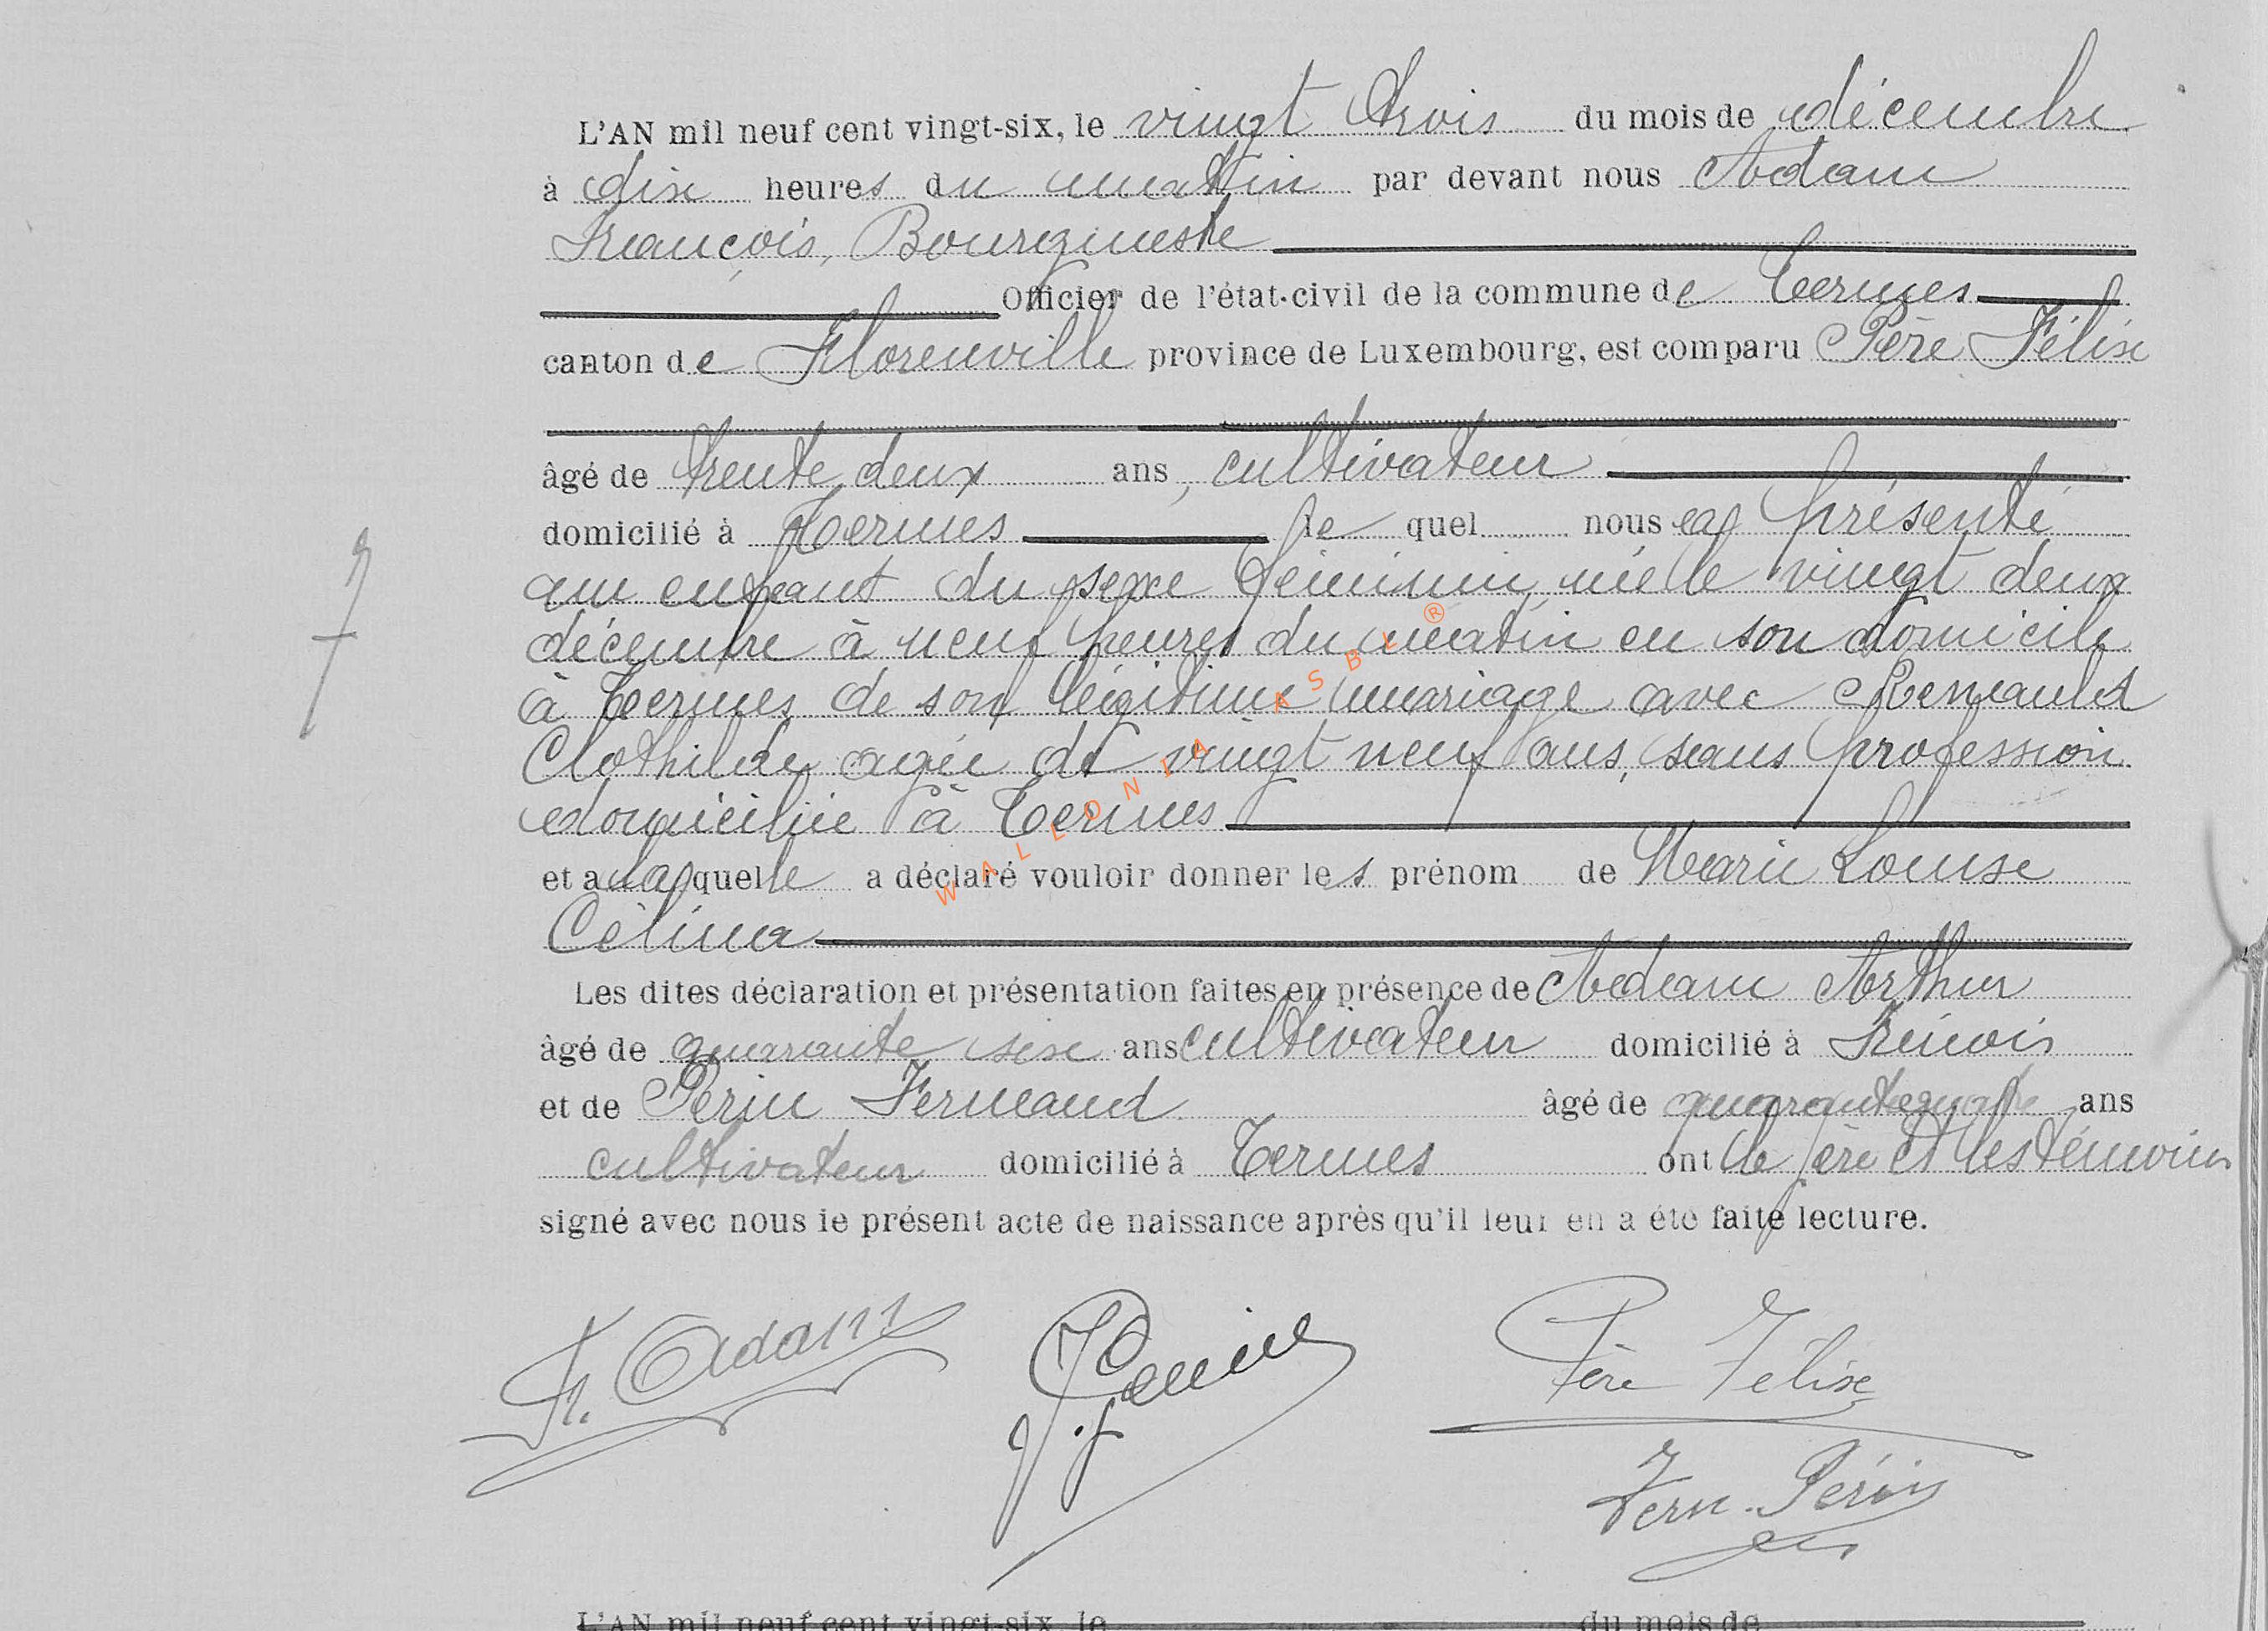 L'AN mil neuf cent vingt-six, le vingt trois du mois de décembre
à dix heures du matin par devant nous Adam
François, Bourgmestre
Officier de l'état-civil de la commune de Termes
canton de Florenville province de Luxembourg, est comparu Père Félix
âgé de trente deux ans, cultivateur
domicilié à Termes le quel nous a présenté
un enfant du sexe féminin, née le vingt deux
décembre à neuf heures du matin en son domicile
à Termes de son légitime mariage avec Renauld
Clothilde agée de vingt neuf ans, sans profession
domiciliée à Termes
et a laquelle a déclaré vouloir donner les prénom de Marie Louise
Célina
Les dites déclaration et présentation faites en présence de Adam Arthur
âgé de quarante six ans cultivateur domicilié à Frénois
et de Périn Fernand âgé de quarante quatre ans
cultivateur domicilié à Termes ont le père et les témoins
signé avec nous le présent acte de naissance après qu'il leur en a été faite lecture.
Fr. Adam Père Félix
Fern. Périn
L'AN mil neuf cent vingt-six, le du mois de
7
WALLONIA ASBL ®